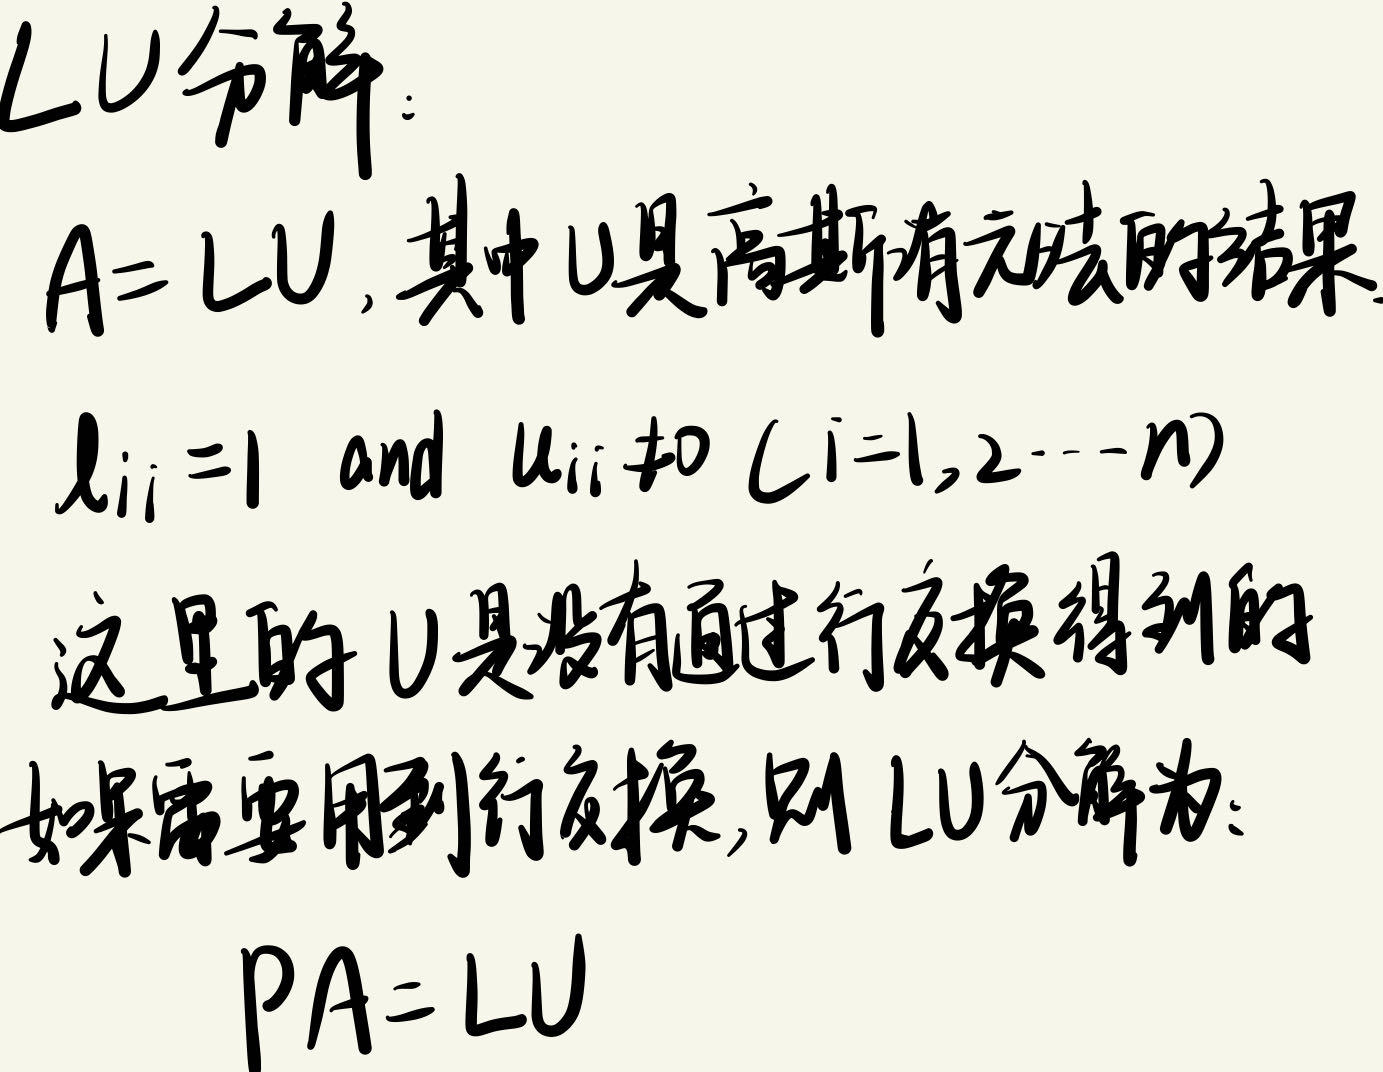 LU分解:
A=LU,其中U是高斯消元法的结果.
lii=1 and uii≠0 (i=1,2----n)
这里的U是没有通过行交换得到的
如果需要用到行交换,则LU分解为:
PA=LU